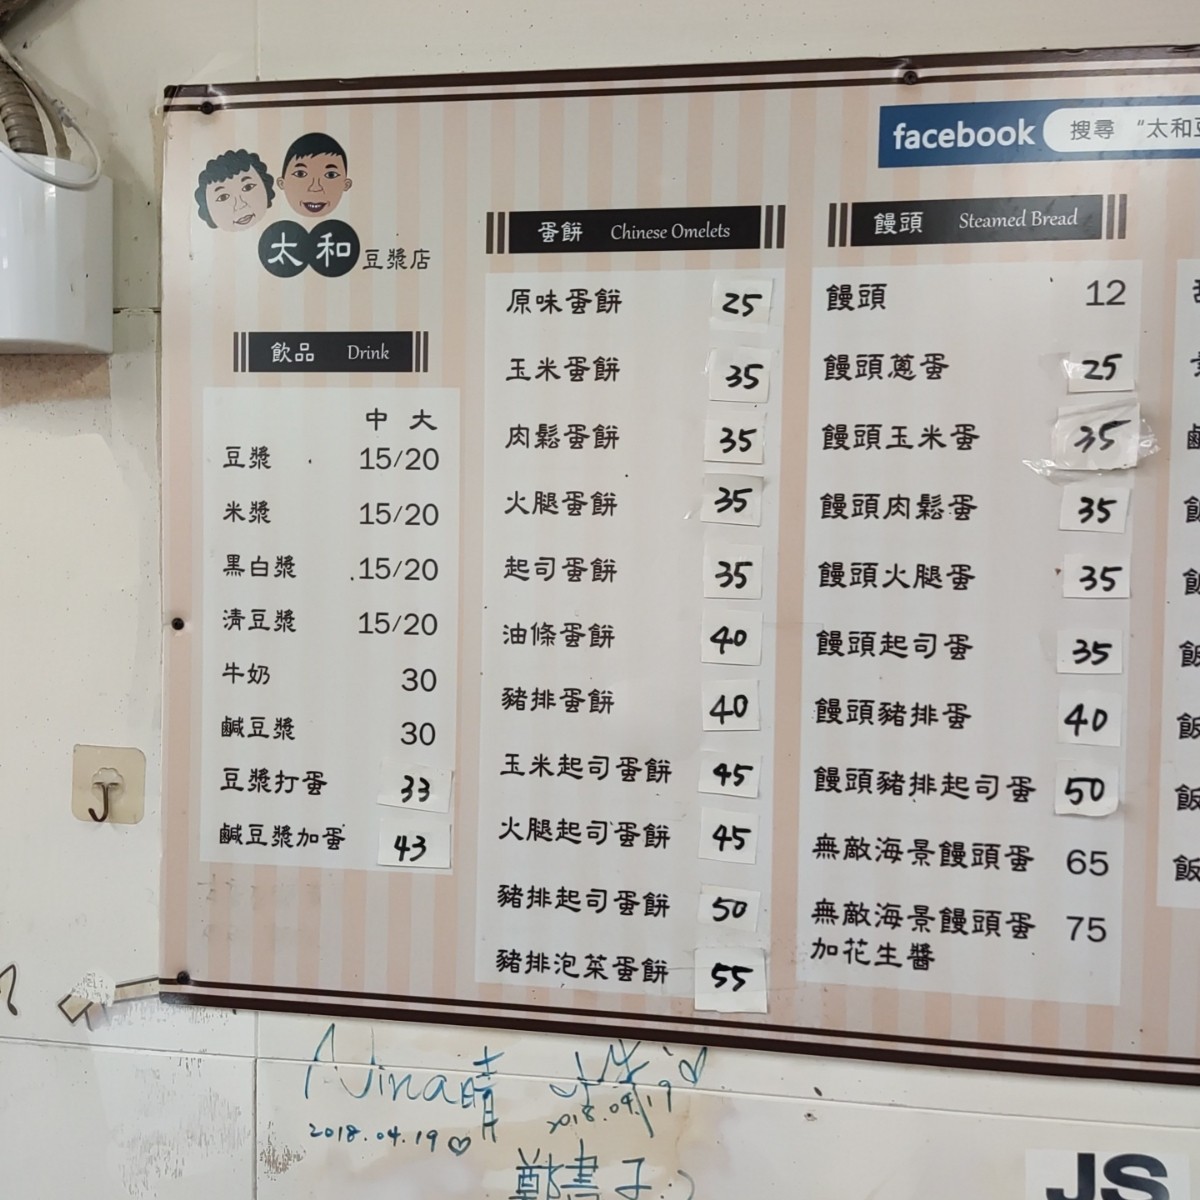 太和豆漿店
飲品 Drink
中 大
豆漿 15/20
米漿 15/20
黑白漿 15/20
清豆漿 15/20
牛奶 30
鹹豆漿 30
豆漿打蛋 33
鹹豆漿加蛋 43
蛋餅 Chinese Omelets
原味蛋餅 25
玉米蛋餅 35
肉鬆蛋餅 35
火腿蛋餅 35
起司蛋餅 35
油條蛋餅 40
豬排蛋餅 40
玉米起司蛋餅 45
火腿起司蛋餅 45
豬排起司蛋餅 50
豬排泡菜蛋餅 55
facebook 搜尋 “太和豆
饅頭 Steamed Bread
饅頭 12
饅頭蔥蛋 25
饅頭玉米蛋 35
饅頭肉鬆蛋 35
饅頭火腿蛋 35
饅頭起司蛋 35
饅頭豬排蛋 40
饅頭豬排起司蛋 50
無敵海景饅頭蛋 65
無敵海景饅頭蛋 75
加花生醬
鹹
飯
飯
飯
飯
飯
飯
Nina晴
2018.04.19
2018.04.19
JS